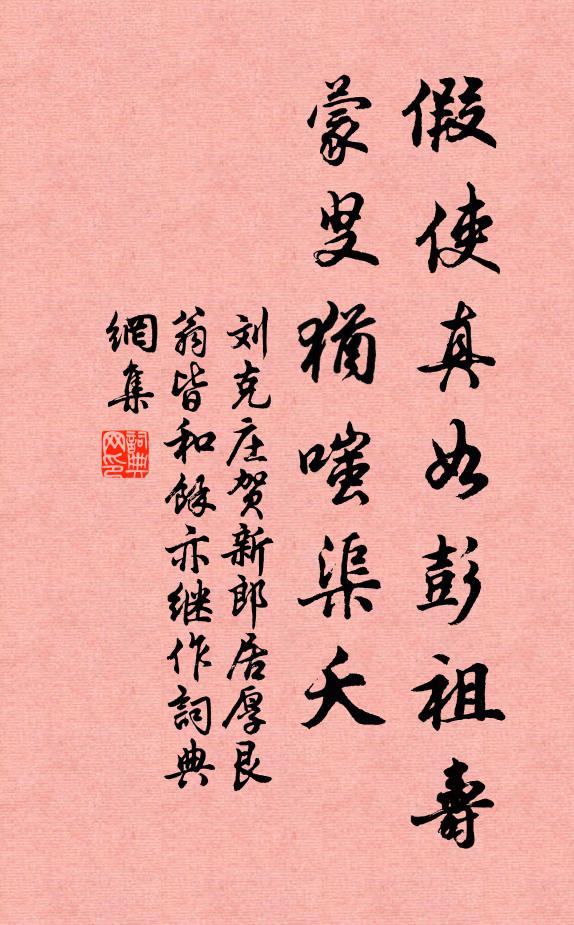 假使真如彭祖壽
蒙叟猶嗤渠夭
刘克庄贺新郎居厚艮
翁皆和馀亦继作詞典
網集
詞典
网印